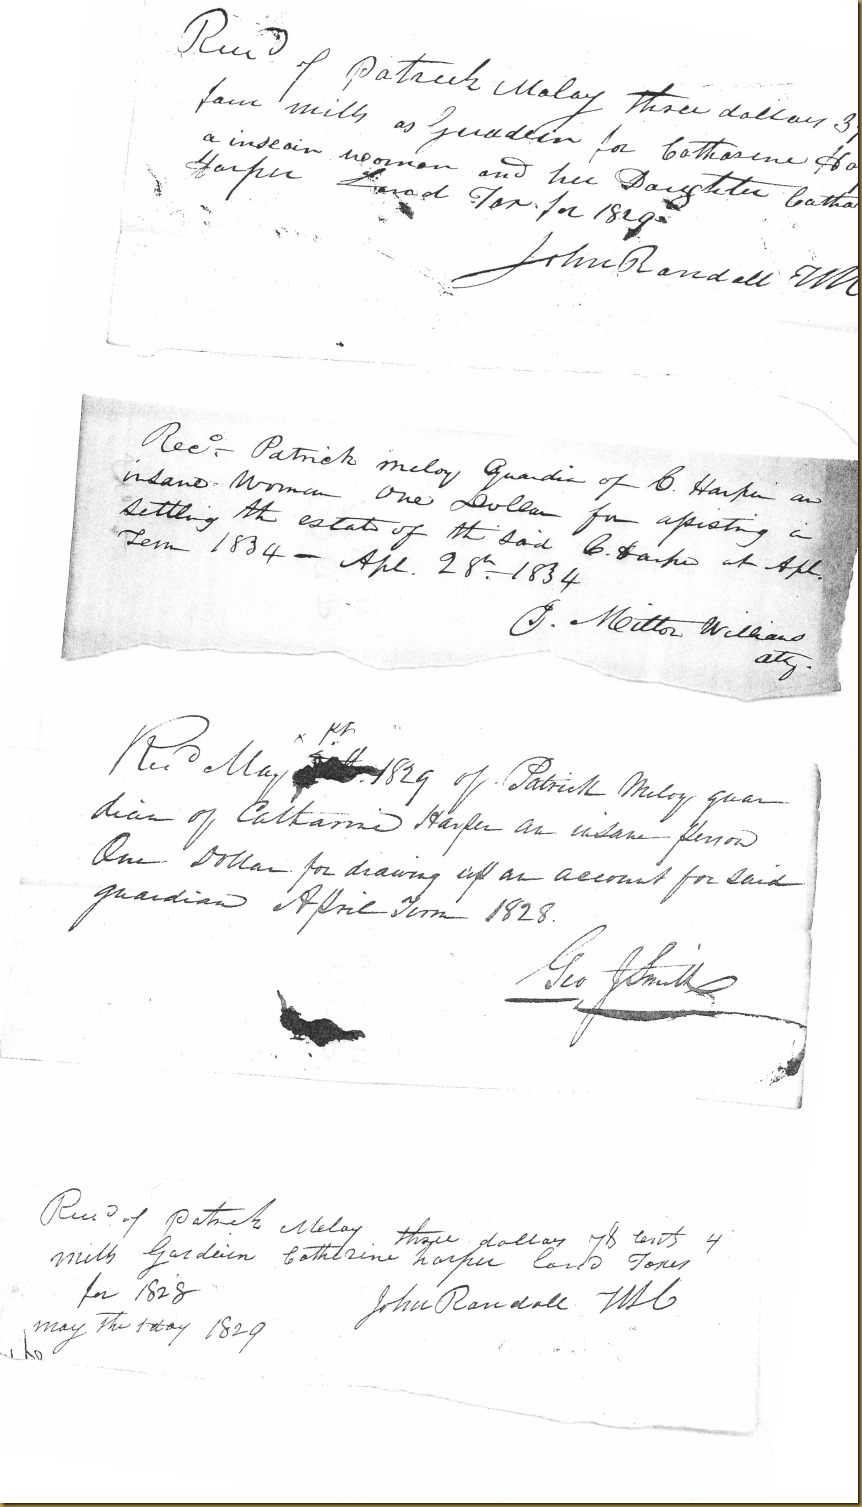 Recd of Patrick Maloy three dollars 3
four mills as Guadein for Catharine Ha
a inseain woman and her Daughter Catha
Harper Land Tax for 1829
John Randall
Recd- Patrick Meloy Guardin of C. Harper an
insane Woman One Dollar for assisting in
settling the estate of the said C. Harper at Apl.
Term 1834 - Apl. 28th 1834
J. Milton Williams
atty.
Recd May 1829 of Patrick Meloy guar
dian of Catharine Harper an insane person
One Dollar for drawing up an account for said
guardian April Term 1828.
Geo J Smith
Recd of Patrick Meloy three dollars 78 cents 4
mills Gardein Catherine harper land Taxes
for 1828
John Randall
may the 1 day 1829